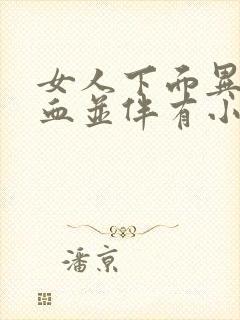 女人下面異
血並伴有小
潘京